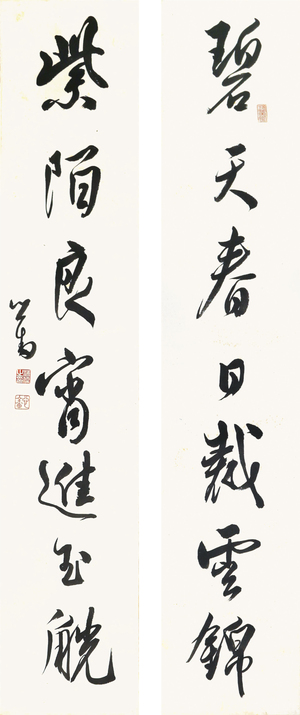 碧天春日裁雲錦
紫陌良宵進玉觥
心畬